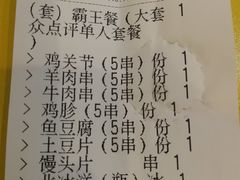 (套) 霸王餐 (大套 1
众点评单人套餐
)
> 鸡关节 (5串) 份 1
> 羊肉串 (5串) 份 1
> 牛肉串 (5串) 份 1
> 鸡胗 (5串) 份 1
> 鱼豆腐 (5串) 份 1
> 土豆片 (5串) 份 1
> 馒头片 串 1
> 北冰洋 (瓶) 冰 1